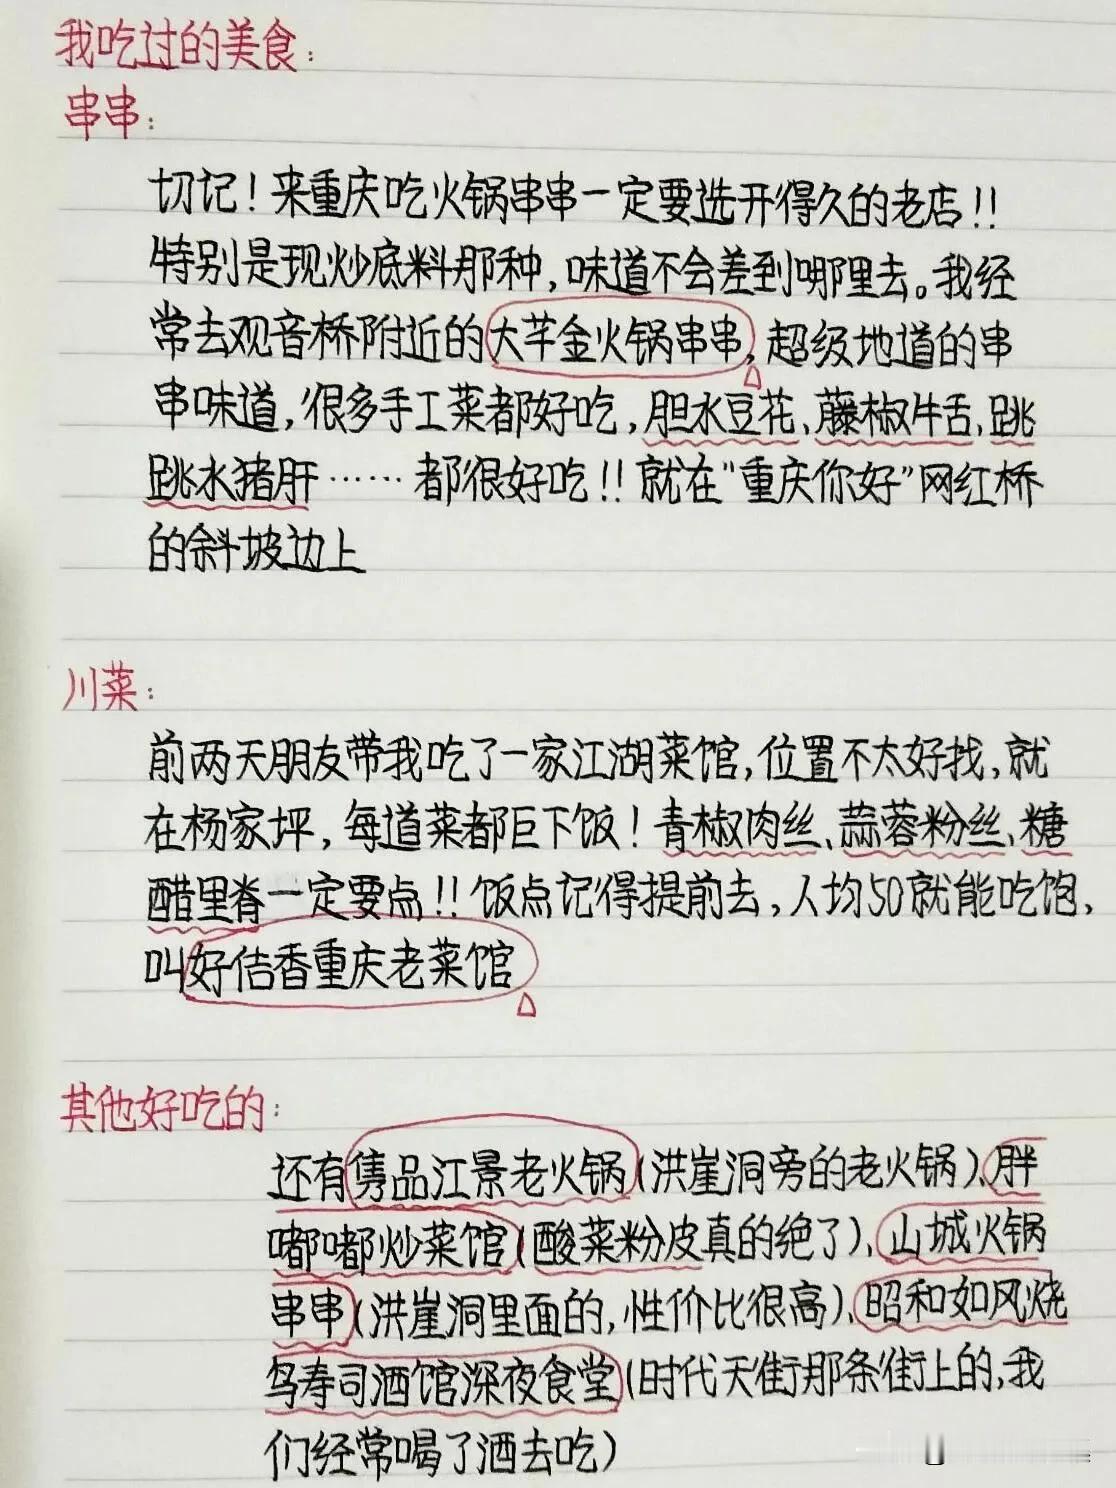 我吃过的美食：
串串：
切记！来重庆吃火锅串串一定要选开得久的老店！！
特别是现炒底料那种，味道不会差到哪里去。我经
常去观音桥附近的大芊金火锅串串，超级地道的串
串味道，很多手工菜都好吃，胆水豆花、藤椒牛舌、跳
跳水猪肝……都很好吃！！就在“重庆你好”网红桥
的斜坡边上
川菜：
前两天朋友带我吃了一家江湖菜馆，位置不太好找，就
在杨家坪，每道菜都巨下饭！青椒肉丝、蒜蓉粉丝、糖
醋里脊一定要点！！饭点记得提前去，人均50就能吃饱，
叫好佶香重庆老菜馆
其他好吃的：
还有隽品江景老火锅(洪崖洞旁的老火锅)、胖
嘟嘟炒菜馆(酸菜粉皮真的绝了)、山城火锅
串串(洪崖洞里面的，性价比很高)、昭和如风烧
鸟寿司酒馆深夜食堂(时代天街那条街上的，我
们经常喝了酒去吃)